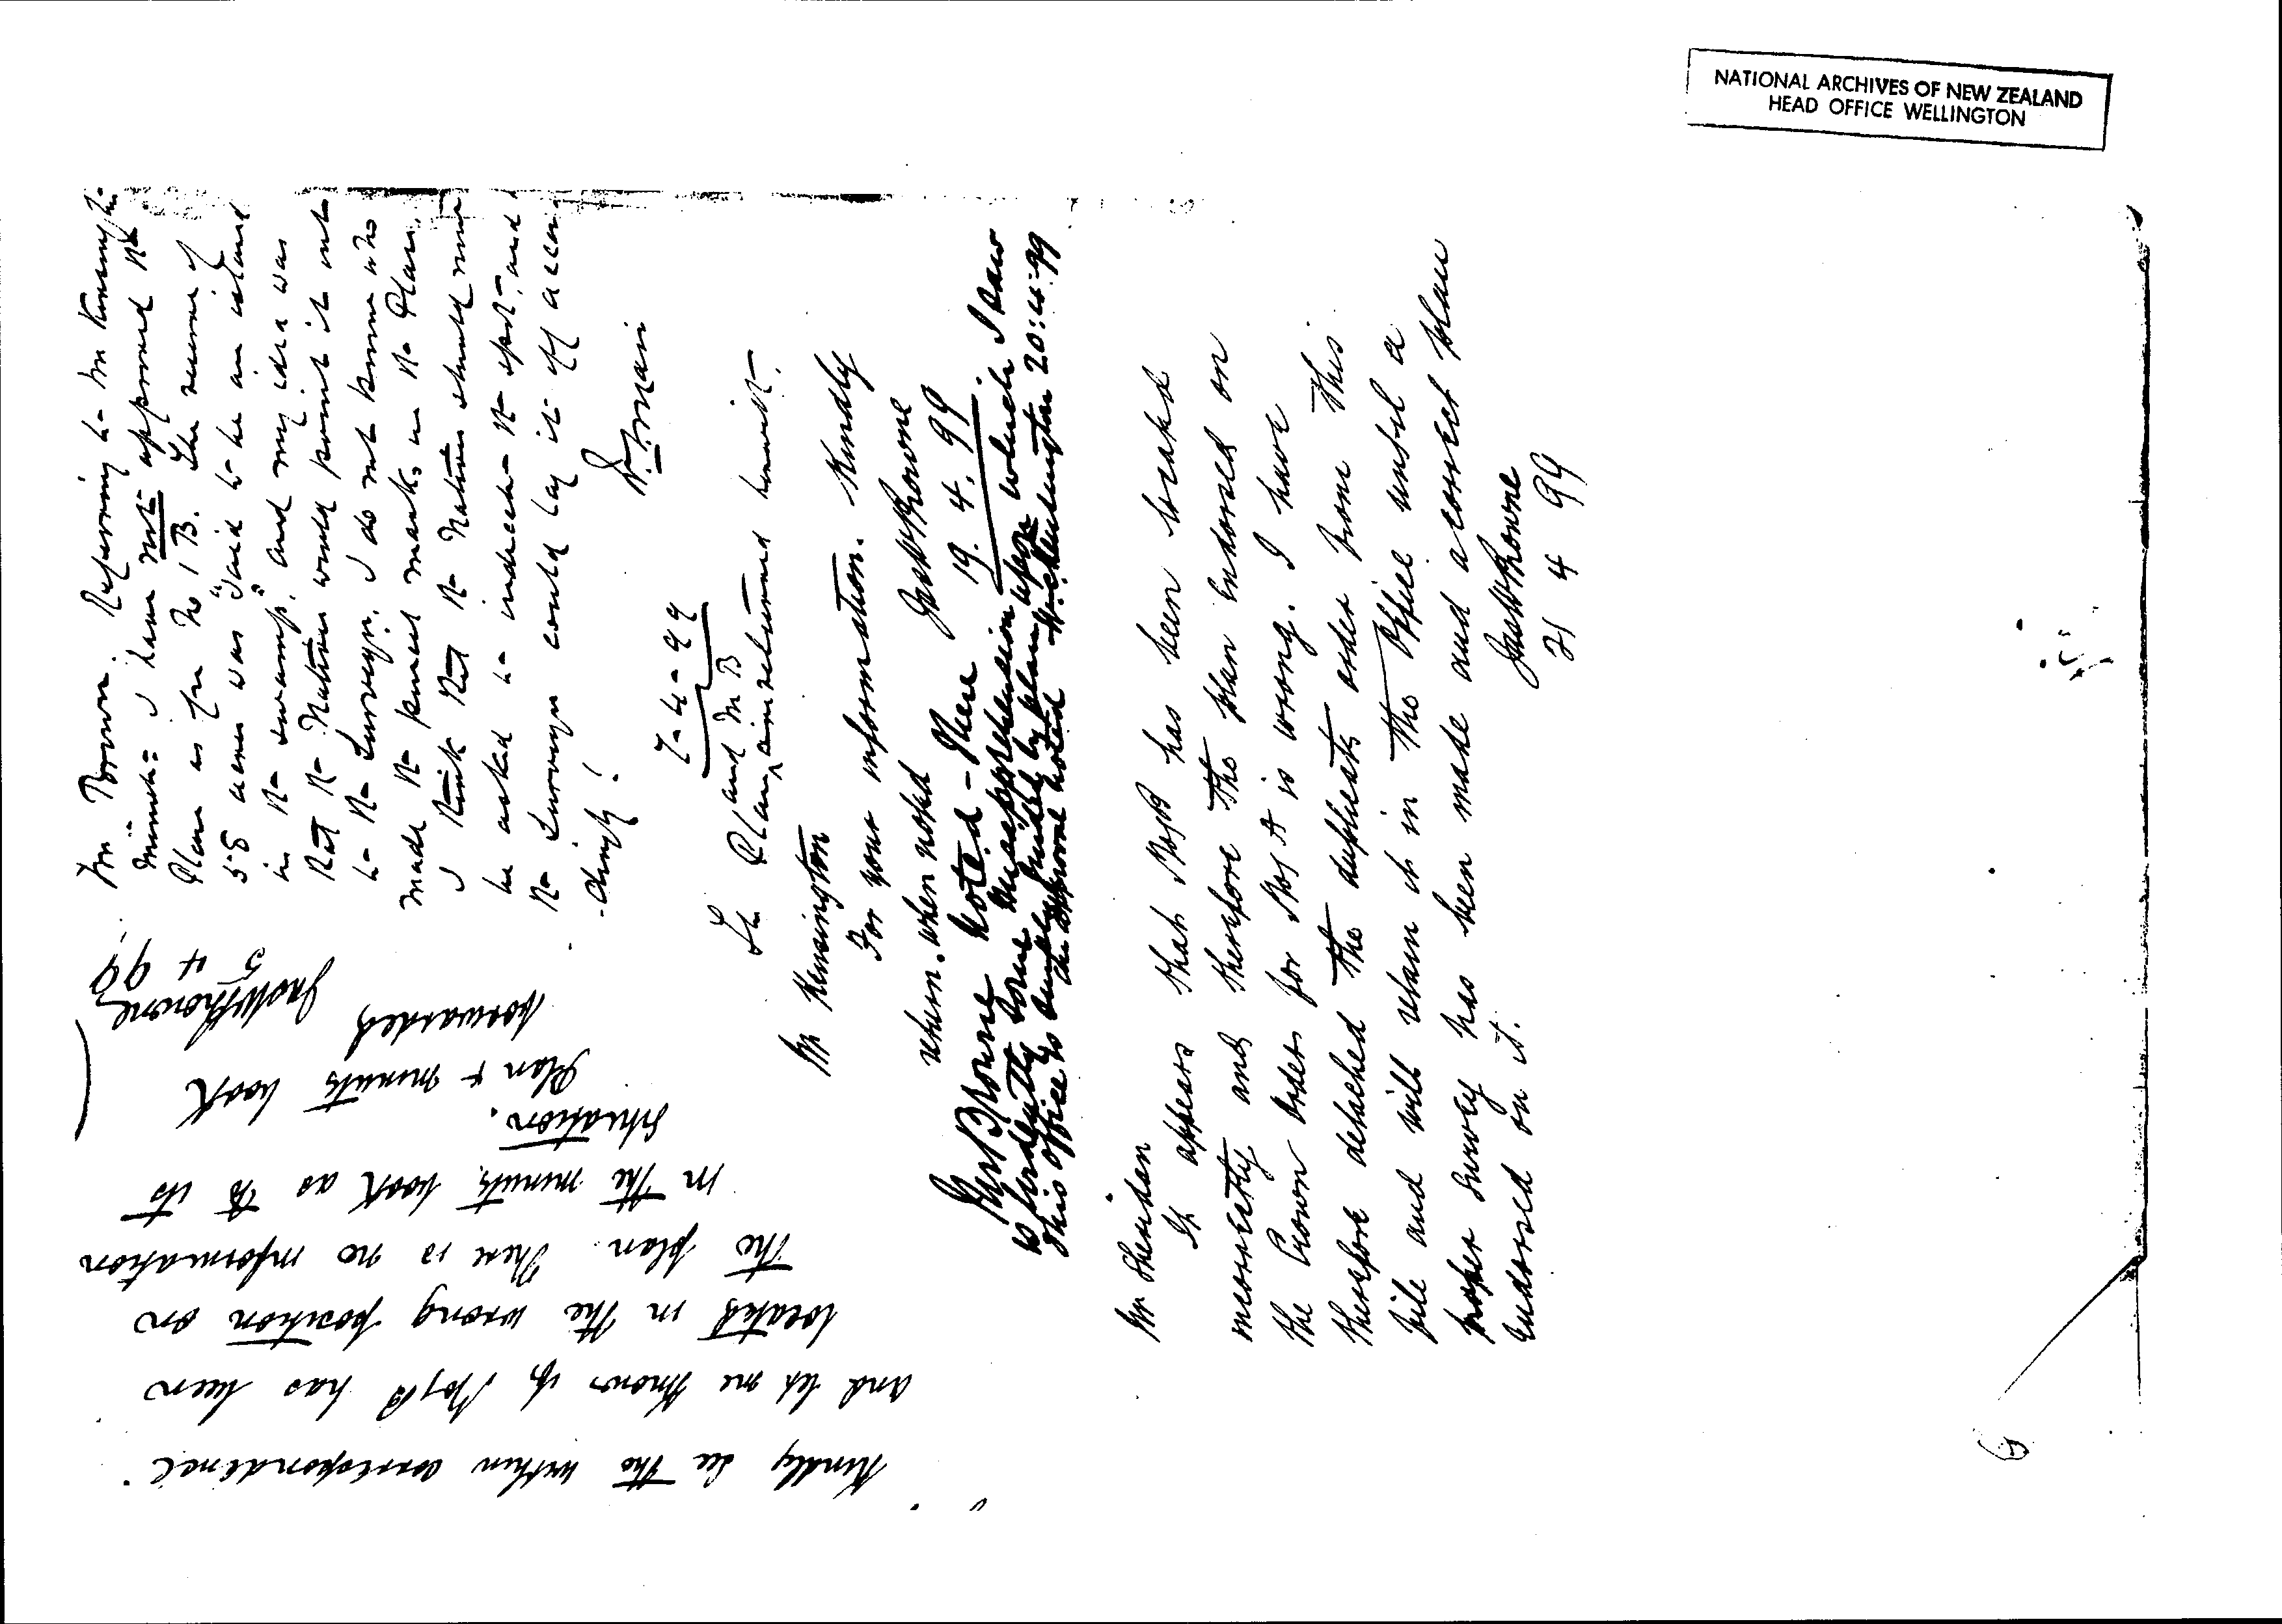 NATIONAL ARCHIVES OF NEW ZEALAND
HEAD OFFICE WELLINGTON
Kindly see the within correspondence
and let me know if No 1B has been
located in the wrong position on
the plan. There is no information
in the minute book as to its
situation.
Plan & minute book
forwarded
JasWBrowne
5 4 99
Mr Browne. Referring to Mr Kensington's
minute I have not approved the
Plan as for No 1 B. The reserve of
58 acres was "said to be an island
in the swamp" and my idea was
that the Natives would point it out
to the Surveyor. I do not know who
made the pencil marks on the Plan.
I think that the Natives should now
be asked to indicate the spot, and
the Surveyor could lay it off accor
-dingly!
7-4-99
The Plan and M B are returned herewith.
Mr Kensington
For your information. Kindly
return when noted JasWBrowne
19. 4. 99
Mr Browne Noted - There
is evidently some misapprehension upon which I saw
this office to
the approval noted 20:4:99
Mr Sheridan
It appears that No 1B has been located
incorrectly and therefore the plan endorsed on
the Crown orders for No 1 A is wrong. I have
therefore detached the duplicate order from this
file and will retain it in the Office until a
proper survey has been made and a correct plan
endorsed on it.
JasWBrowne
21 4 99